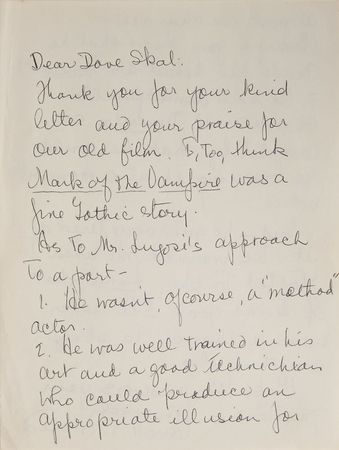 Dear Dave Skal:
Thank you for your kind
letter and your praise for
our old film. I, too, think
Mark of the Vampire was a
fine Gothic story.
As to Mr. Lugosi's approach
to a part—
1. He wasn't, ofcourse, a "method"
actor.
2. He was well trained in his
art and a good technichian
who could produce an
appropriate illusion for